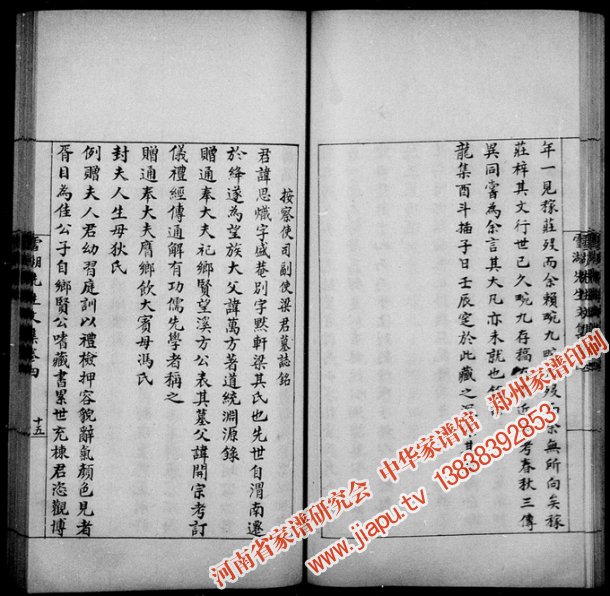 年一見稼莊歿而余賴晼九晼
歿而余無所向矣稼
莊梓其文行世已久晼九存稿
近
考春秋三傳
異同嘗為余言其大凡亦未就也
龍集酉斗插子日壬辰窆於此藏之深
按察使司副使梁君墓誌銘
君諱思熾字盛菴別字默軒梁其氏也先世自渭南遷
於絳遂為望族大父諱萬方著道統淵源錄
贈通奉大夫祀鄉賢望溪方公表其墓父諱開宗考訂
儀禮經傳通解有功儒先學者稱之
贈通奉大夫膺鄉飲大賓母馮氏
封夫人生母狄氏
例贈夫人君幼習庭訓以禮檢押容貌辭氣顏色見者
胥目為佳公子自鄉賢公嗜藏書累世充棟君恣觀博
十五
河南省家谱研究会 中华家谱馆 郑州家谱印刷
www.jiapu.tv 13838392853